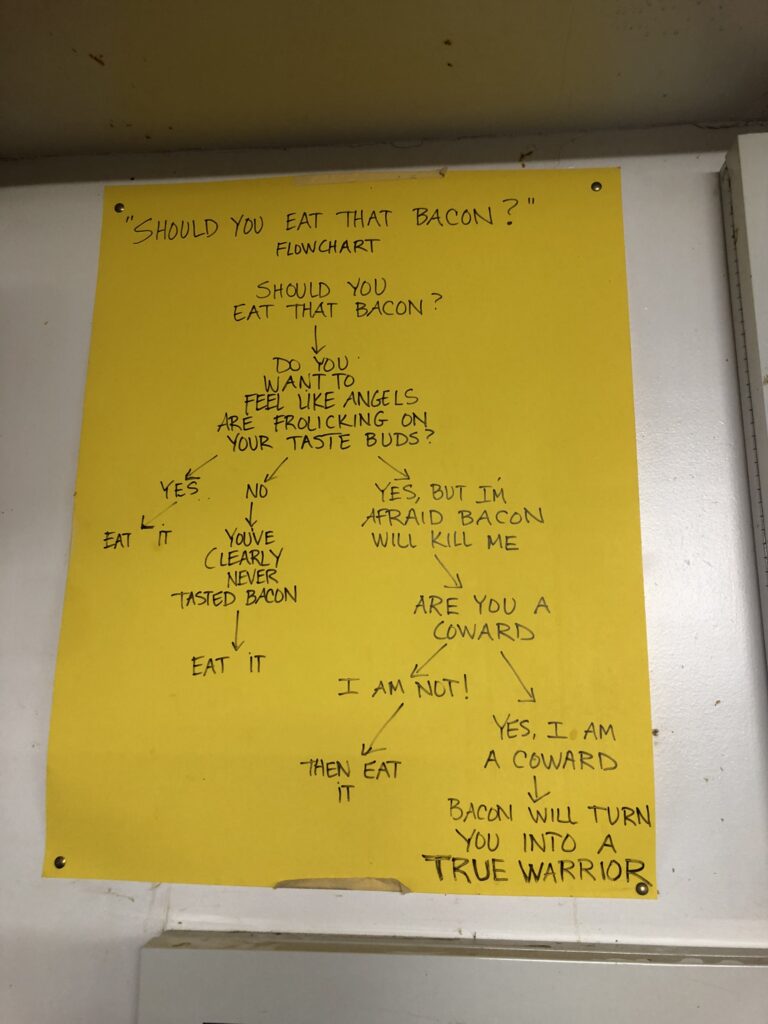 "SHOULD YOU EAT THAT BACON?"
FLOWCHART
SHOULD YOU
EAT THAT BACON?
DO YOU
WANT TO
FEEL LIKE ANGELS
ARE FROLICKING ON
YOUR TASTE BUDS?
YES
EAT IT
NO
YOU'VE
CLEARLY
NEVER
TASTED BACON
EAT IT
YES, BUT I'M
AFRAID BACON
WILL KILL ME
ARE YOU A
COWARD
I AM NOT!
THEN EAT
IT
YES, I AM
A COWARD
BACON WILL TURN
YOU INTO A
TRUE WARRIOR